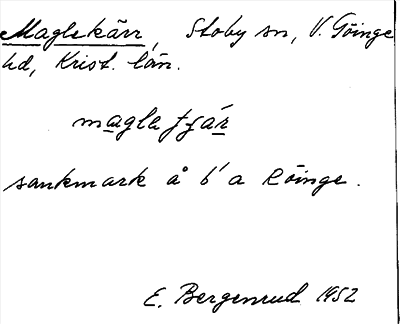 Maglekärr, Stoby sn, V. Göinge
hd, Krist. län.
magle tjár
sankmark å b'a Röinge.
E. Bergenrud 1952